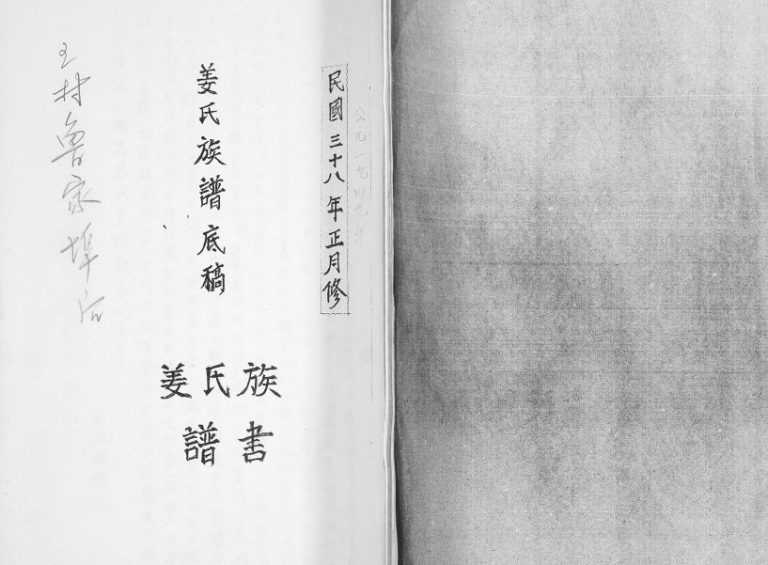 民國三十八年正月修
公元一九四九年
姜氏族譜底稿
姜氏族
譜书
王村魯家埠